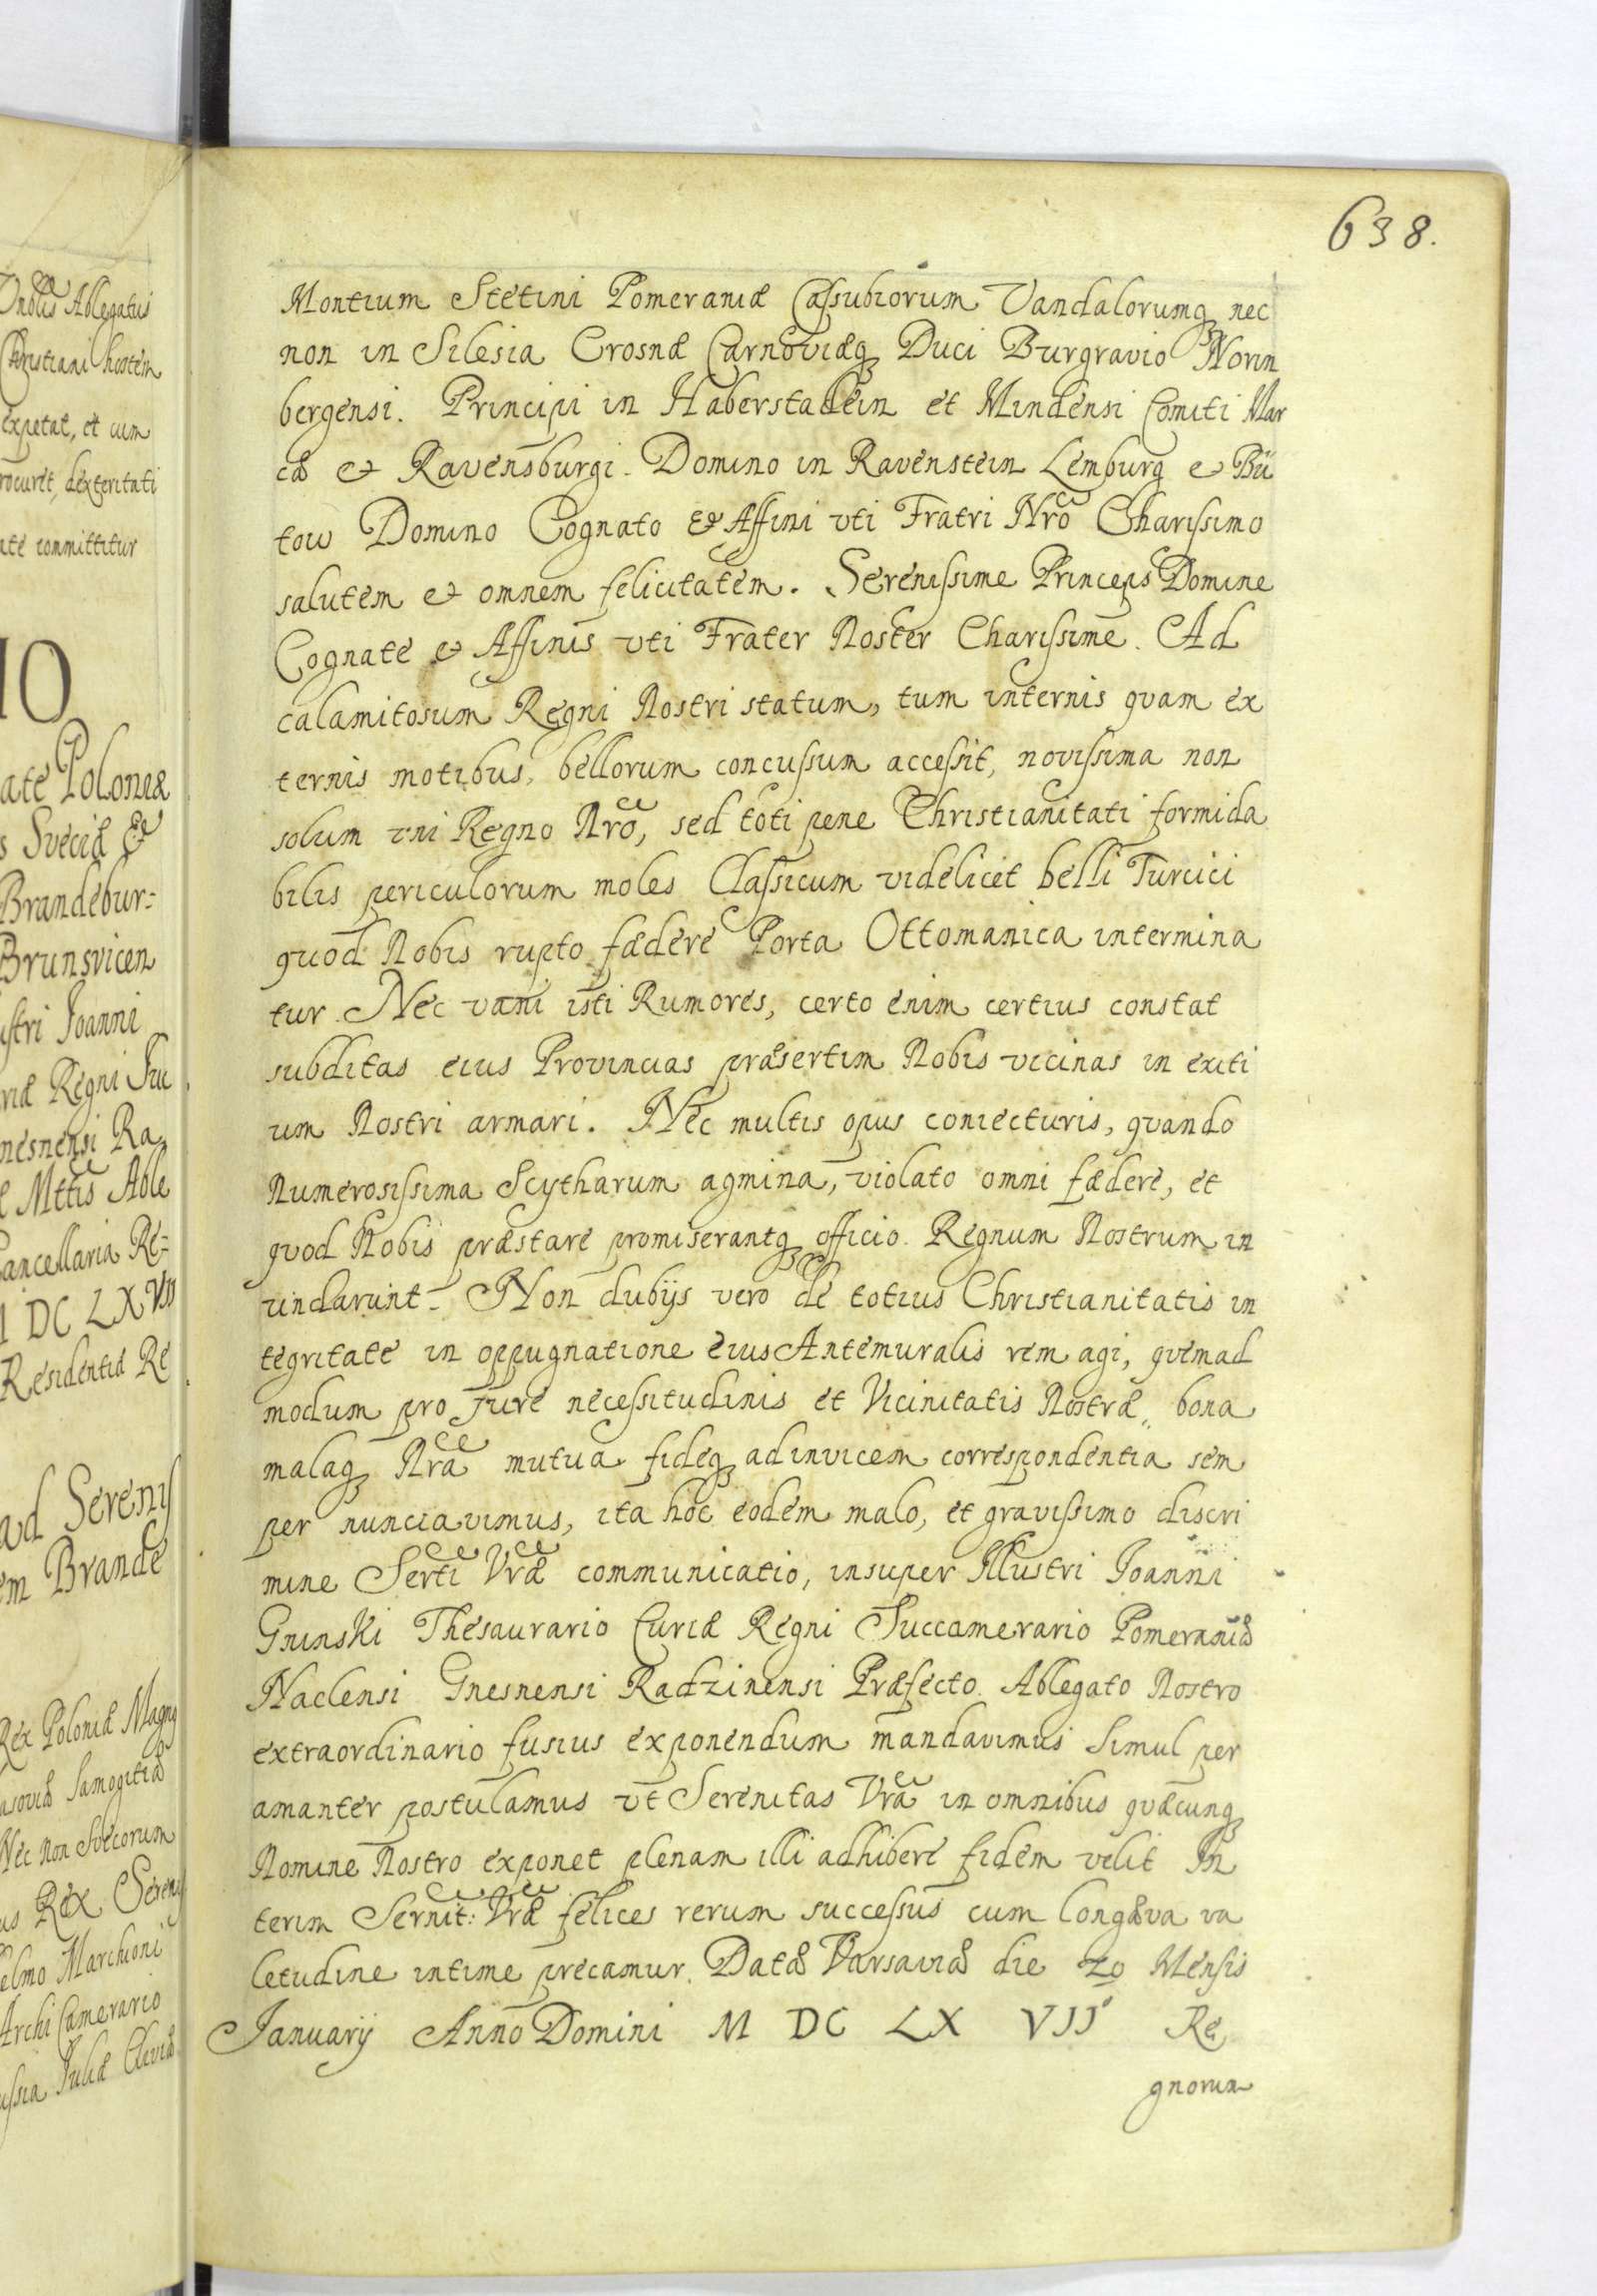 638.
Montium Stetini Pomeraniæ Cassubiorum Vandalorumq nec
non in Silesia Crosnæ Carnoviæq Duci Burgravio Norin
bergensi. Principi in Haberstadein et Mindensi Comiti Mar
cæ et Ravensburgi. Domino in Ravenstein Lemburg et Bü
tow Domino Cognato et Affini vti Fratri Nro Charissimo
salutem et omnem felicitatem. Serenissime Princeps Domine
Cognate et Affinis vti Frater Noster Charissime. Ad
calamitosum Regni Nostri statum, tum internis quam ex
ternis motibus, bellorum concussum accessit, novissima non
solum vni Regno Nro, sed toti pene Christianitati formida
bilis periculorum moles Classicum videlicet belli Turcici
quod Nobis rupto fædere Porta Ottomanica intermina
tur. Nec vani isti Rumores, certo enim certius constat
subditas eius Provincias præsertim Nobis vicinas in exiti
um Nostri armari. Nec multis opus coniecturis, quando
Numerosissima Scytharum agmina, violato omni fædere, et
quod Nobis præstare promiserantq officio. Regnum Nostrum in
undarunt. Non dubijs vero de totius Christianitatis in
tegritate in oppugnatione eius Antemuralis rem agi, quemad
modum pro Jure necessitudinis et Vicinitatis Nostræ, bona
malaq Nra mutua fideq adinvicem correspondentia sem
per nunciavimus, ita hoc eodem malo, et gravissimo discri
mine Serti Vræ communicatio, insuper Illustri Joanni
Gninski Thesaurario Curiæ Regni Succamerario Pomeraniæ
Naclensi Gnesnensi Radzinensi Præfecto. Ablegato Nostro
extraordinario fusius exponendum mandavimus Simul per
amanter postulamus vt Serenitas Vra in omnibus quæcunq
Nomine Nostro exponet plenam illi adhibere fidem velit In
terim Sernit: Vræ felices rerum successus cum longæva va
letudine intime precamur. Datæ Varsaviæ die 20 Mensis
Januarij Anno Domini M DC LX VII Re
gnorum
Ablegatus
Christiani hostem
expetat, et cum
rocuret, dexteritati
ate committitur
IO
ate Poloniæ
s Sveciæ et
Brandebur=
Brunsvicen
ustri Joanni
riæ Regni Suc
nesnensi Ra
Mttis Able
ancellaria Re=
DC LX VII
Residentiæ Re
ad Sereniss
em Brande
Rex Poloniæ Magnq
asoviæ Samogitiæ
Nec non Svecorum
us Rex Sereniss
elmo Marchioni
Archi Camerario
ussia Juliæ Cliviæ